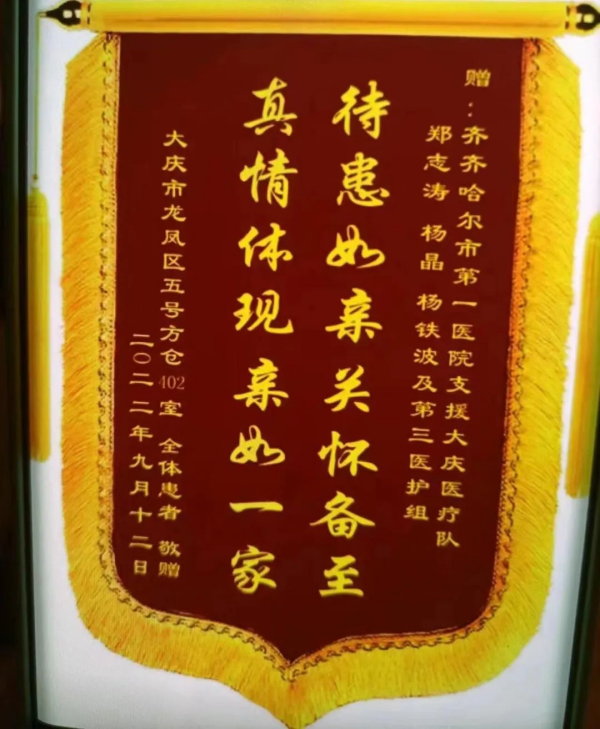 赠：齐齐哈尔市第一医院支援大庆医疗队
郑志涛 杨晶 杨铁波及第三医护组
待患如亲关怀备至
真情体现亲如一家
大庆市龙凤区五号方仓402室 全体患者 敬赠
二〇二二年九月十二日